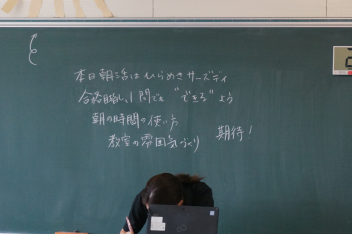 本日朝活はひらめきサーズデイ
合格目指し、1問でも"できる"よう
朝の時間の使い方
教室の雰囲気づくり
期待!